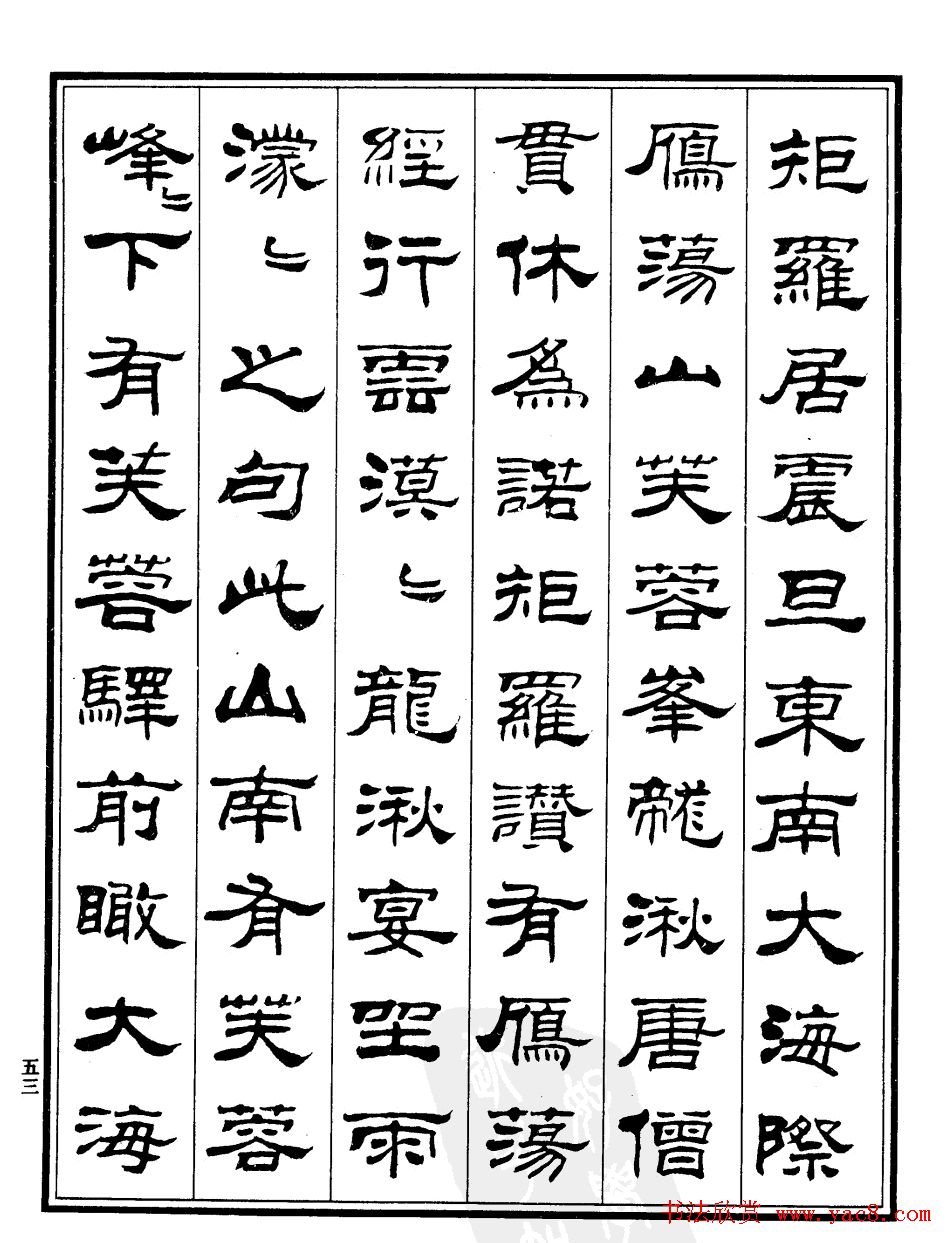 矩羅居震旦東南大海際
鴈蕩山芙蓉峯龍湫唐僧
貫休為諾矩羅讚有鴈蕩
經行雲漠〻龍湫宴坐雨
濛〻之句此山南有芙蓉
峰〻下有芙蓉驛前瞰大海
五三
书法欣赏 www.yac8.com